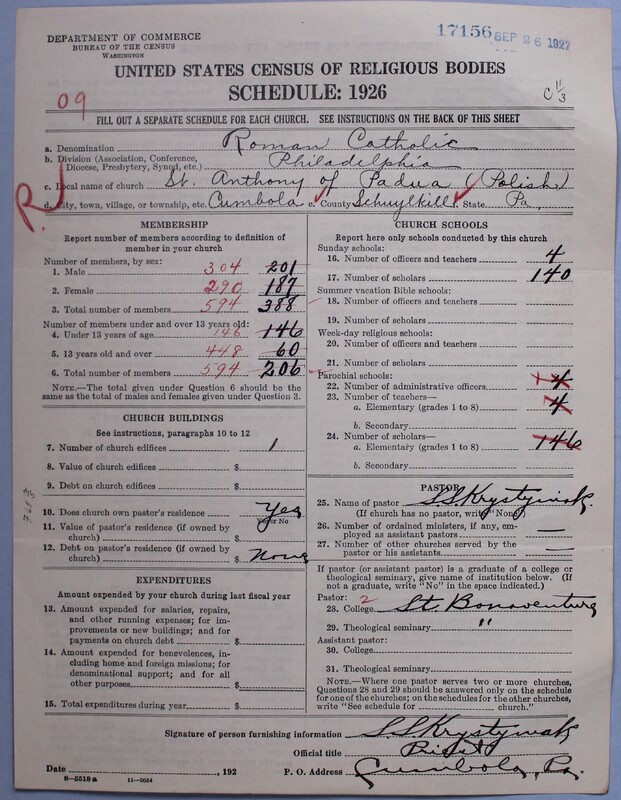 17156 SEP 26 1927
DEPARTMENT OF COMMERCE
BUREAU OF THE CENSUS
WASHINGTON
UNITED STATES CENSUS OF RELIGIOUS BODIES
SCHEDULE: 1926
09
C 11/3
FILL OUT A SEPARATE SCHEDULE FOR EACH CHURCH. SEE INSTRUCTIONS ON THE BACK OF THIS SHEET
a. Denomination Roman Catholic
b. Division (Association, Conference,
Diocese, Presbytery, Synod, etc.) Philadelphia
c. Local name of church St. Anthony of Padua (Polish)
R
d. City, town, village, or township, etc. Cumbola e. County Schuylkill f. State Pa.
MEMBERSHIP
Report number of members according to definition of
member in your church
Number of members, by sex:
1. Male 304 201
2. Female 290 187
3. Total number of members 594 388
Number of members under and over 13 years old:
4. Under 13 years of age 146 146
5. 13 years old and over 448 60
6. Total number of members 594 206
NOTE.—The total given under Question 6 should be
the same as the total of males and females given under Question 3.
CHURCH BUILDINGS
See instructions, paragraphs 10 to 12
7. Number of church edifices 1
8. Value of church edifices $
9. Debt on church edifices $
10. Does church own pastor's residence Yes
Yes or No
11. Value of pastor's residence (if owned by
church) $
12. Debt on pastor's residence (if owned by
church) $ None
EXPENDITURES
Amount expended by your church during last fiscal year
13. Amount expended for salaries, repairs,
and other running expenses; for im-
provements or new buildings; and for
payments on church debt $
14. Amount expended for benevolences, in-
cluding home and foreign missions; for
denominational support; and for all
other purposes $
15. Total expenditures during year $
CHURCH SCHOOLS
Report here only schools conducted by this church
Sunday schools:
16. Number of officers and teachers 4
17. Number of scholars 140
Summer vacation Bible schools:
18. Number of officers and teachers
19. Number of scholars
Week-day religious schools:
20. Number of officers and teachers
21. Number of scholars
Parochial schools:
22. Number of administrative officers 4
23. Number of teachers—
a. Elementary (grades 1 to 8) 4
b. Secondary
24. Number of scholars—
a. Elementary (grades 1 to 8) 146
b. Secondary
PASTOR
25. Name of pastor S.S. Krystyniak.
(If church has no pastor, write "None")
26. Number of ordained ministers, if any, em-
ployed as assistant pastors —
27. Number of other churches served by the
pastor or his assistants —
If pastor (or assistant pastor) is a graduate of a college or
theological seminary, give name of institution below. (If
not a graduate, write "No" in the space indicated.)
Pastor: 2
28. College St. Bonaventure
29. Theological seminary "
Assistant pastor:
30. College
31. Theological seminary
NOTE.—Where one pastor serves two or more churches,
Questions 28 and 29 should be answered only on the schedule
for one of the churches; on the schedules for the other churches,
write "See schedule for church."
Signature of person furnishing information S.S. Krystyniak
Official title Priest
Date , 192 P. O. Address Cumbola, Pa.
8-5518 a 11-9554